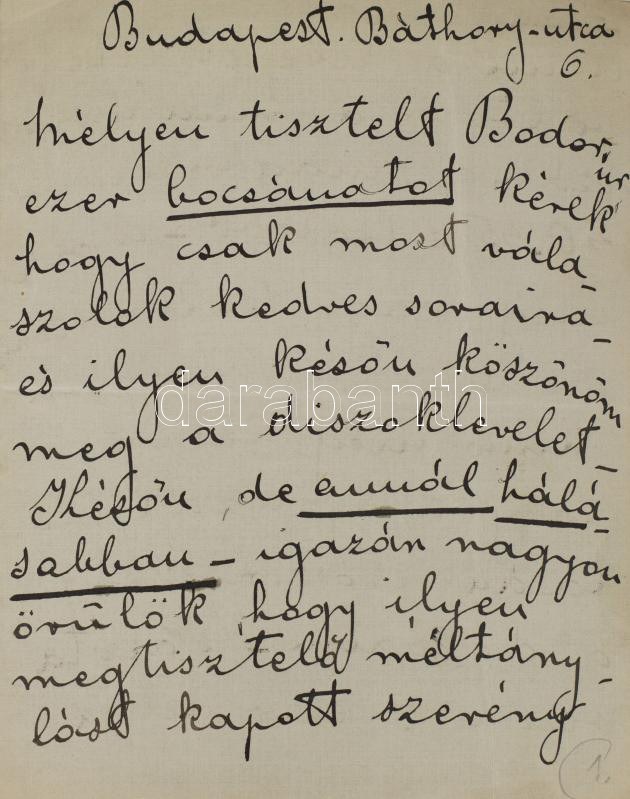 Budapest. Báthory-utca
6.
Mélyen tisztelt Bodor úr
ezer bocsánatot kérek
hogy csak most vála-
szolok kedves soraira -
és ilyen későn köszönöm
meg a diszoklevelet -
Későn, de annál hálá-
sabban - igazán nagyon
örülök, hogy ilyen
megtisztelő méltány-
lást kapott szerény
1.
darabanth